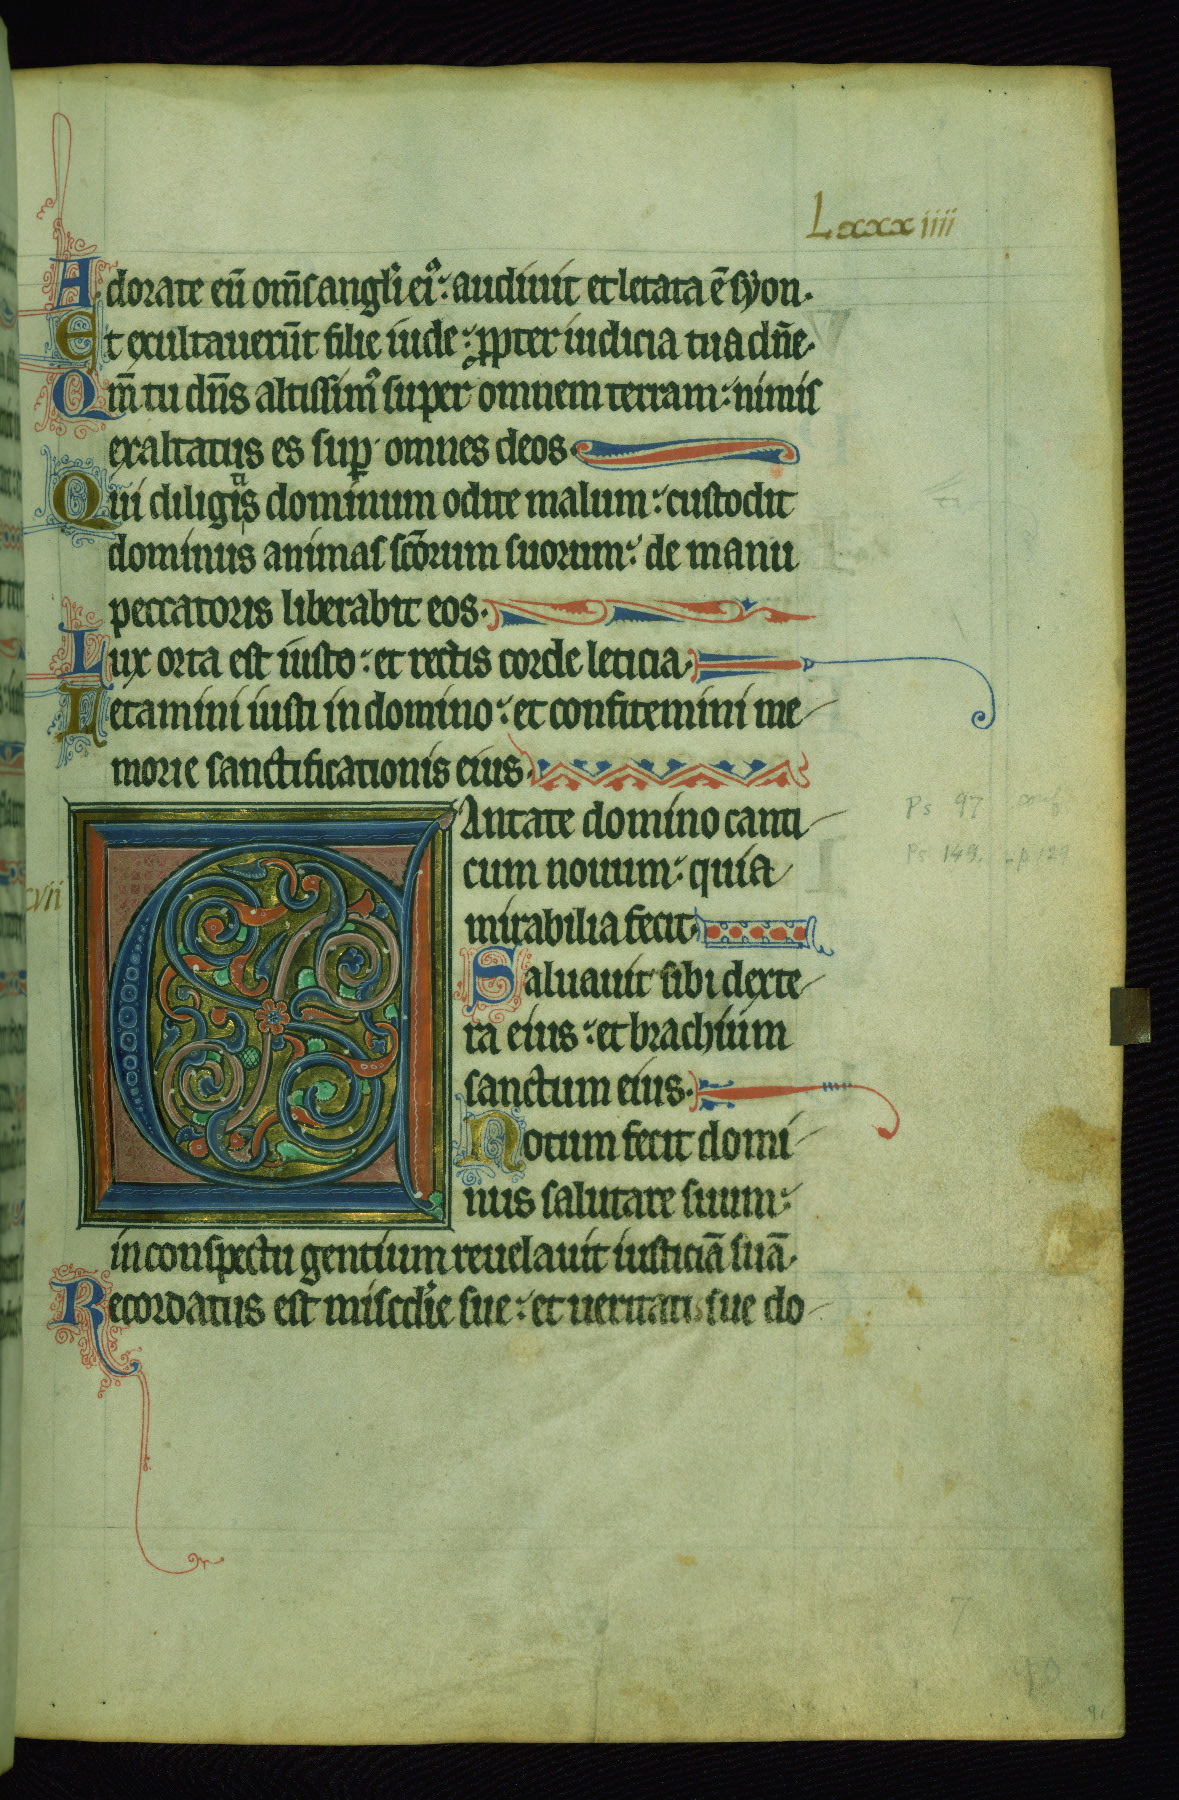 Lxxxiiii
Adorate eū om̄s angl̓i ei᷒ : audiuit et letata ē syon.
Et exultauerūt filie iude : ꝓpter iudicia tua dn̄e.
Qm̄ tu dn̄s altissim᷒ super omnem terram : nimis
exaltatus es sup̄ omnes deos.
Qui diligitis dominum odite malum : custodit
dominus animas scōrum suorum : de manu
peccatoris liberabit eos.
Lux orta est iusto : et rectis corde leticia.
Letamini iusti in domino : et confitemini me
morie sanctificationis eius.
CAntate domino canti
cum nouum : quia
mirabilia fecit.
Saluauit sibi dexte
ra eius : et brachium
sanctum eius.
Notum fecit domi
nus salutare suum :
in conspectu gentium reuelauit iusticiā suā.
Recordatus est misc̄die sue : et ueritatis sue do
cvii
Ps 97
Ps 149
7
90
91